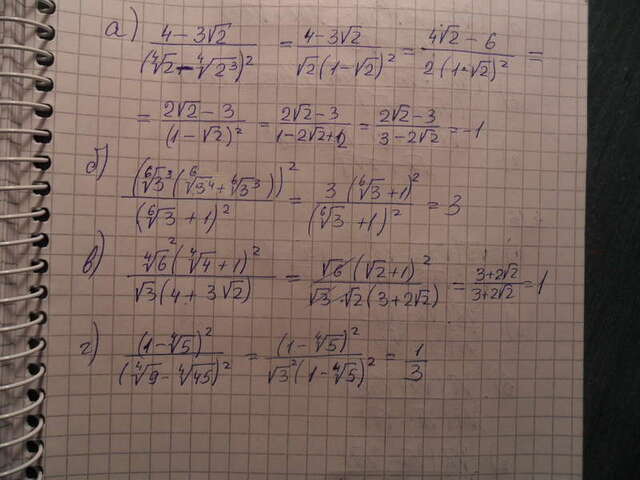 а) \frac{4-3\sqrt{2}}{(\sqrt[4]{2}-\sqrt[4]{2^3})^2} = \frac{4-3\sqrt{2}}{\sqrt{2}(1-\sqrt{2})^2} = \frac{4\sqrt{2}-6}{2(1-\sqrt{2})^2} =
= \frac{2\sqrt{2}-3}{(1-\sqrt{2})^2} = \frac{2\sqrt{2}-3}{1-2\sqrt{2}+2} = \frac{2\sqrt{2}-3}{3-2\sqrt{2}} = -1
б) \frac{(\sqrt[6]{3}^3(\sqrt[6]{3^4}+\sqrt[6]{3^3}))^2}{(\sqrt[6]{3}+1)^2} = \frac{3(\sqrt[6]{3}+1)^2}{(\sqrt[6]{3}+1)^2} = 3
в) \frac{\sqrt[4]{6}^2(\sqrt[4]{4}+1)^2}{\sqrt{3}(4+3\sqrt{2})} = \frac{\sqrt{6}(\sqrt{2}+1)^2}{\sqrt{3}\cdot\sqrt{2}(3+2\sqrt{2})} = \frac{3+2\sqrt{2}}{3+2\sqrt{2}} = 1
г) \frac{(1-\sqrt[4]{5})^2}{(\sqrt[4]{9}-\sqrt[4]{45})^2} = \frac{(1-\sqrt[4]{5})^2}{\sqrt{3}^2(1-\sqrt[4]{5})^2} = \frac{1}{3}